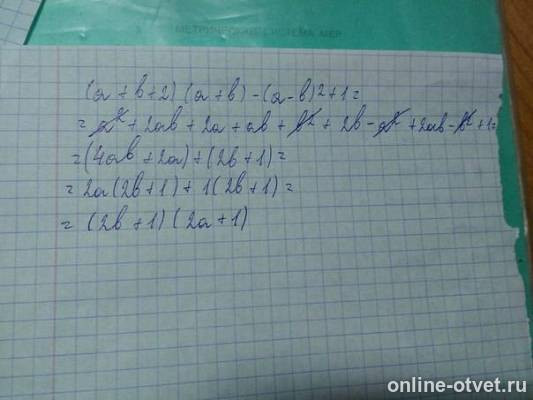 МЕТРИЧЕСКАЯ СИСТЕМА МЕР
(a + b + 2) (a + b) - (a - b)² + 1 =
= a² + 2ab + 2a + ab + b² + 2b - a² + 2ab - b² + 1 =
= (4ab + 2a) + (2b + 1) =
= 2a (2b + 1) + 1 (2b + 1) =
= (2b + 1) (2a + 1)
online-otvet.ru